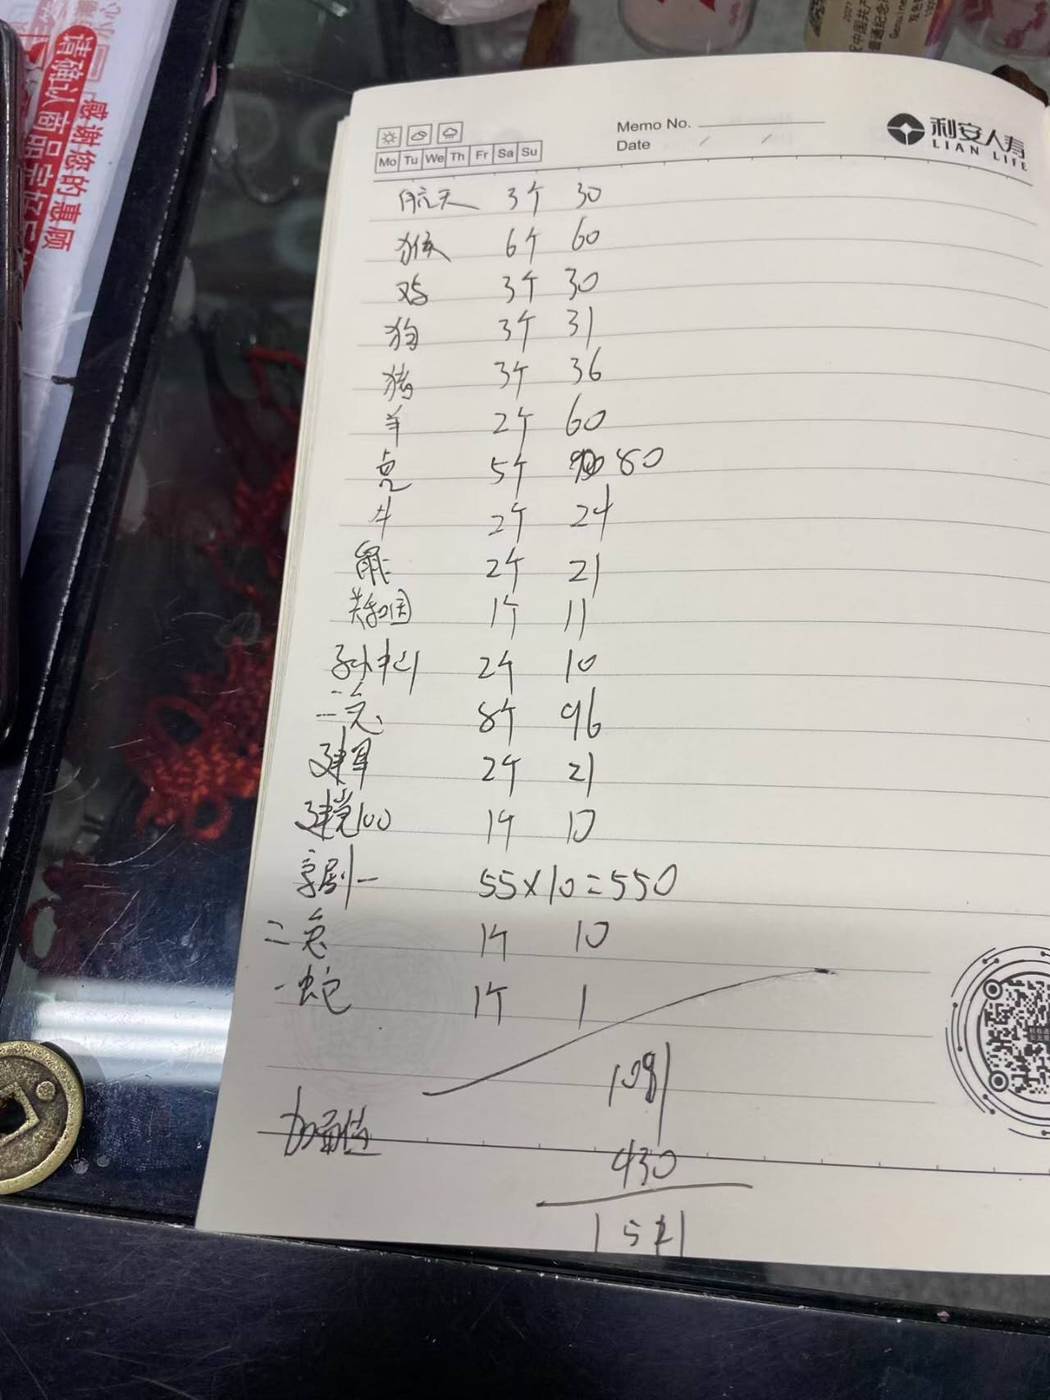 感谢您的惠顾
请确认商品完好
Memo No.
Date / /
利安人寿
LIAN LIFE
Mo Tu We Th Fr Sa Su
航天 3个 30
猴 6个 60
鸡 3个 30
狗 3个 31
猪 3个 36
羊 2个 60
虎 5个 80
牛 2个 24
龍 2个 21
和国 1个 11
孙中山 2个 10
二兔 8个 96
建军 2个 21
建党100 1个 10
京剧一 55×10=550
二兔 1个 10
一蛇 1个 1
1081
面值
430
1511